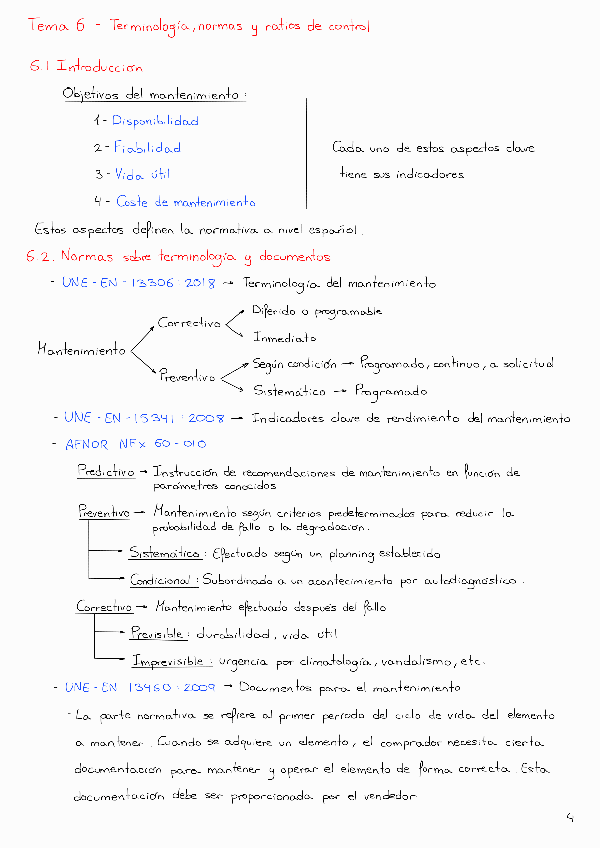 Tema 6 - Terminología, normas y ratios de control
6.1 Introducción
Objetivos del mantenimiento:
1- Disponibilidad
2- Fiabilidad
3- Vida útil
4- Coste de mantenimiento
Cada uno de estos aspectos clave
tiene sus indicadores
Estos aspectos definen la normativa a nivel español.
6.2. Normas sobre terminología y documentos
- UNE-EN-13306:2018 → Terminología del mantenimiento
Mantenimiento
Correctivo
Diferido o programable
Inmediato
Preventivo
Según condición → Programado, continuo, a solicitud
Sistemático → Programado
- UNE-EN-15341:2008 → Indicadores clave de rendimiento del mantenimiento
- AFNOR NFx 60-010
Predictivo → Instrucción de recomendaciones de mantenimiento en función de
parámetros conocidos
Preventivo → Mantenimiento según criterios predeterminados para reducir la
probabilidad de fallo o la degradación.
Sistemático: Efectuado según un planning establecido
Condicional: Subordinado a un acontecimiento por autodiagnóstico.
Correctivo → Mantenimiento efectuado después del fallo
Previsible: durabilidad, vida útil
Imprevisible: urgencia por climatología, vandalismo, etc.
- UNE-EN 13460:2009 → Documentos para el mantenimiento
- La parte normativa se refiere al primer período del ciclo de vida del elemento
a mantener. Cuando se adquiere un elemento, el comprador necesita cierta
documentación para mantener y operar el elemento de forma correcta. Esta
documentación debe ser proporcionada por el vendedor
4